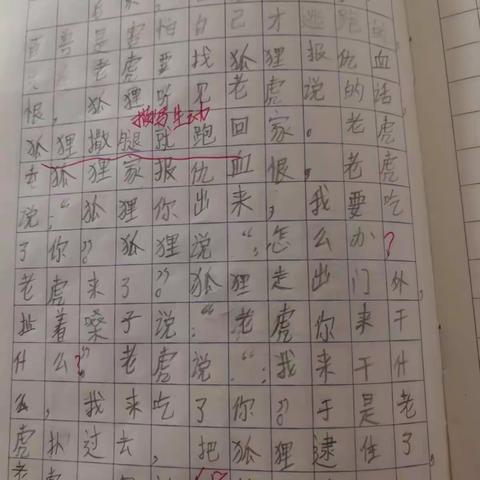 己才逃跑的
百兽是害怕自
老虎要找狐狸报仇血
恨，狐狸听见老虎说的话，
描写生动
狐狸撒腿就跑回家。老虎
去狐狸家报仇血恨，老虎
说：“狐狸你出来，我要吃
了你？”狐狸说“：怎么办？
老虎来了？”狐狸走出门外，
扯着嗓子说：“老虎你来干
什么？”老虎说“：我来干什
么，我来吃了你？”于是老
虎扑过去，把狐狸逮住了。
老虎